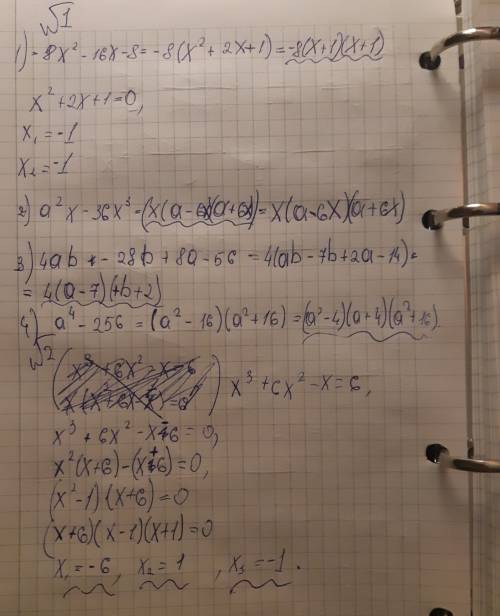 №1
1) -8x² - 16x - 8 = -8(x² + 2x + 1) = -8(x+1)(x+1)
x² + 2x + 1 = 0,
x₁ = -1
x₂ = -1
2) a²x - 36x³ = (x(a-6x)(a+6x) = x(a-6x)(a+6x)
3) 4ab - 28b + 8a - 56 = 4(ab - 7b + 2a - 14) =
= 4(a-7)(b+2)
4) a⁴ - 256 = (a² - 16)(a² + 16) = (a²-4)(a+4)(a²+16)
№2
x³ + 6x² - x = 6,
x³ + 6x² - x - 6 = 0,
x²(x+6) - (x+6) = 0,
(x² - 1)(x+6) = 0
(x+6)(x-1)(x+1) = 0
x₁ = -6, x₂ = 1, x₃ = -1.